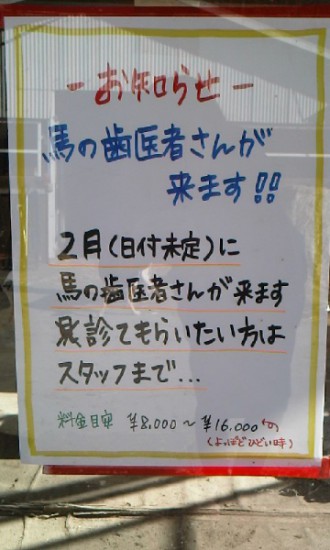 －お知らせ－
馬の歯医者さんが
来ます!!
2月(日付未定)に
馬の歯医者さんが来ます
診てもらいたい方は
スタッフまで...
料金目安 ¥8,000～¥16,000
(よっぽどひどい時)